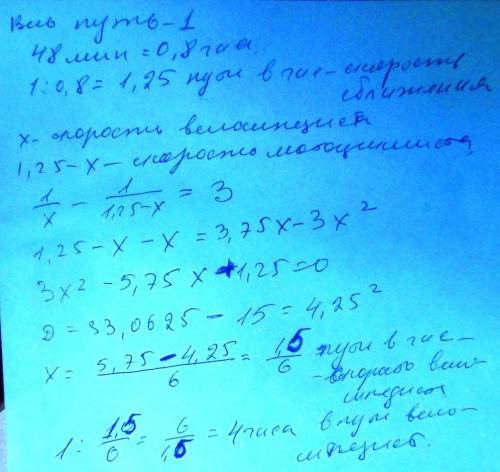 Весь путь - 1
48 мин = 0,8 часа.
1:0,8 = 1,25 пути в час - скорость
сближения
x - скорость велосипедиста
1,25-x - скорость мотоциклиста
1/x - 1/(1,25-x) = 3
1,25-x-x = 3,75x-3x²
3x²-5,75x+1,25=0
D = 33,0625 - 15 = 4,25²
x = (5,75-4,25)/6 = 1,5/6 пути в час -
- скорость вело-
сипедиста
1 : 1,5/6 = 6/1,5 = 4 часа в пути вело-
сипедист.